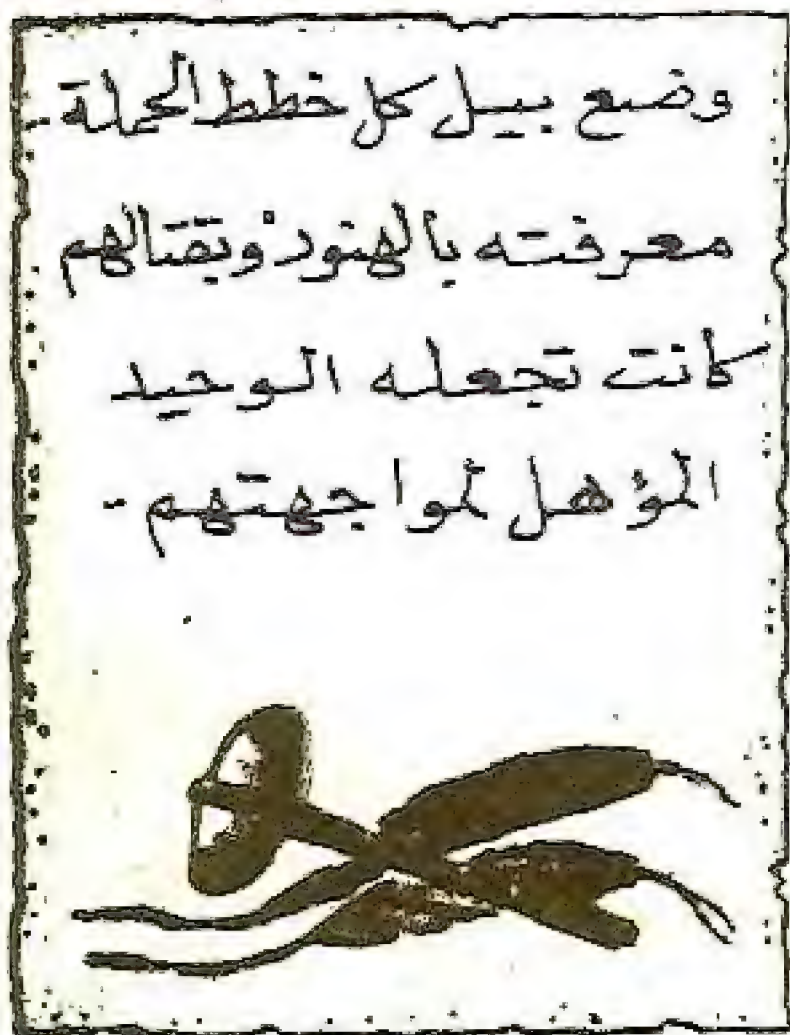 وضع بيل كل خطط الحملة -
معرفته بالهنود وبقتالهم
كانت تجعله الوحيد
المؤهل لمواجهتهم -